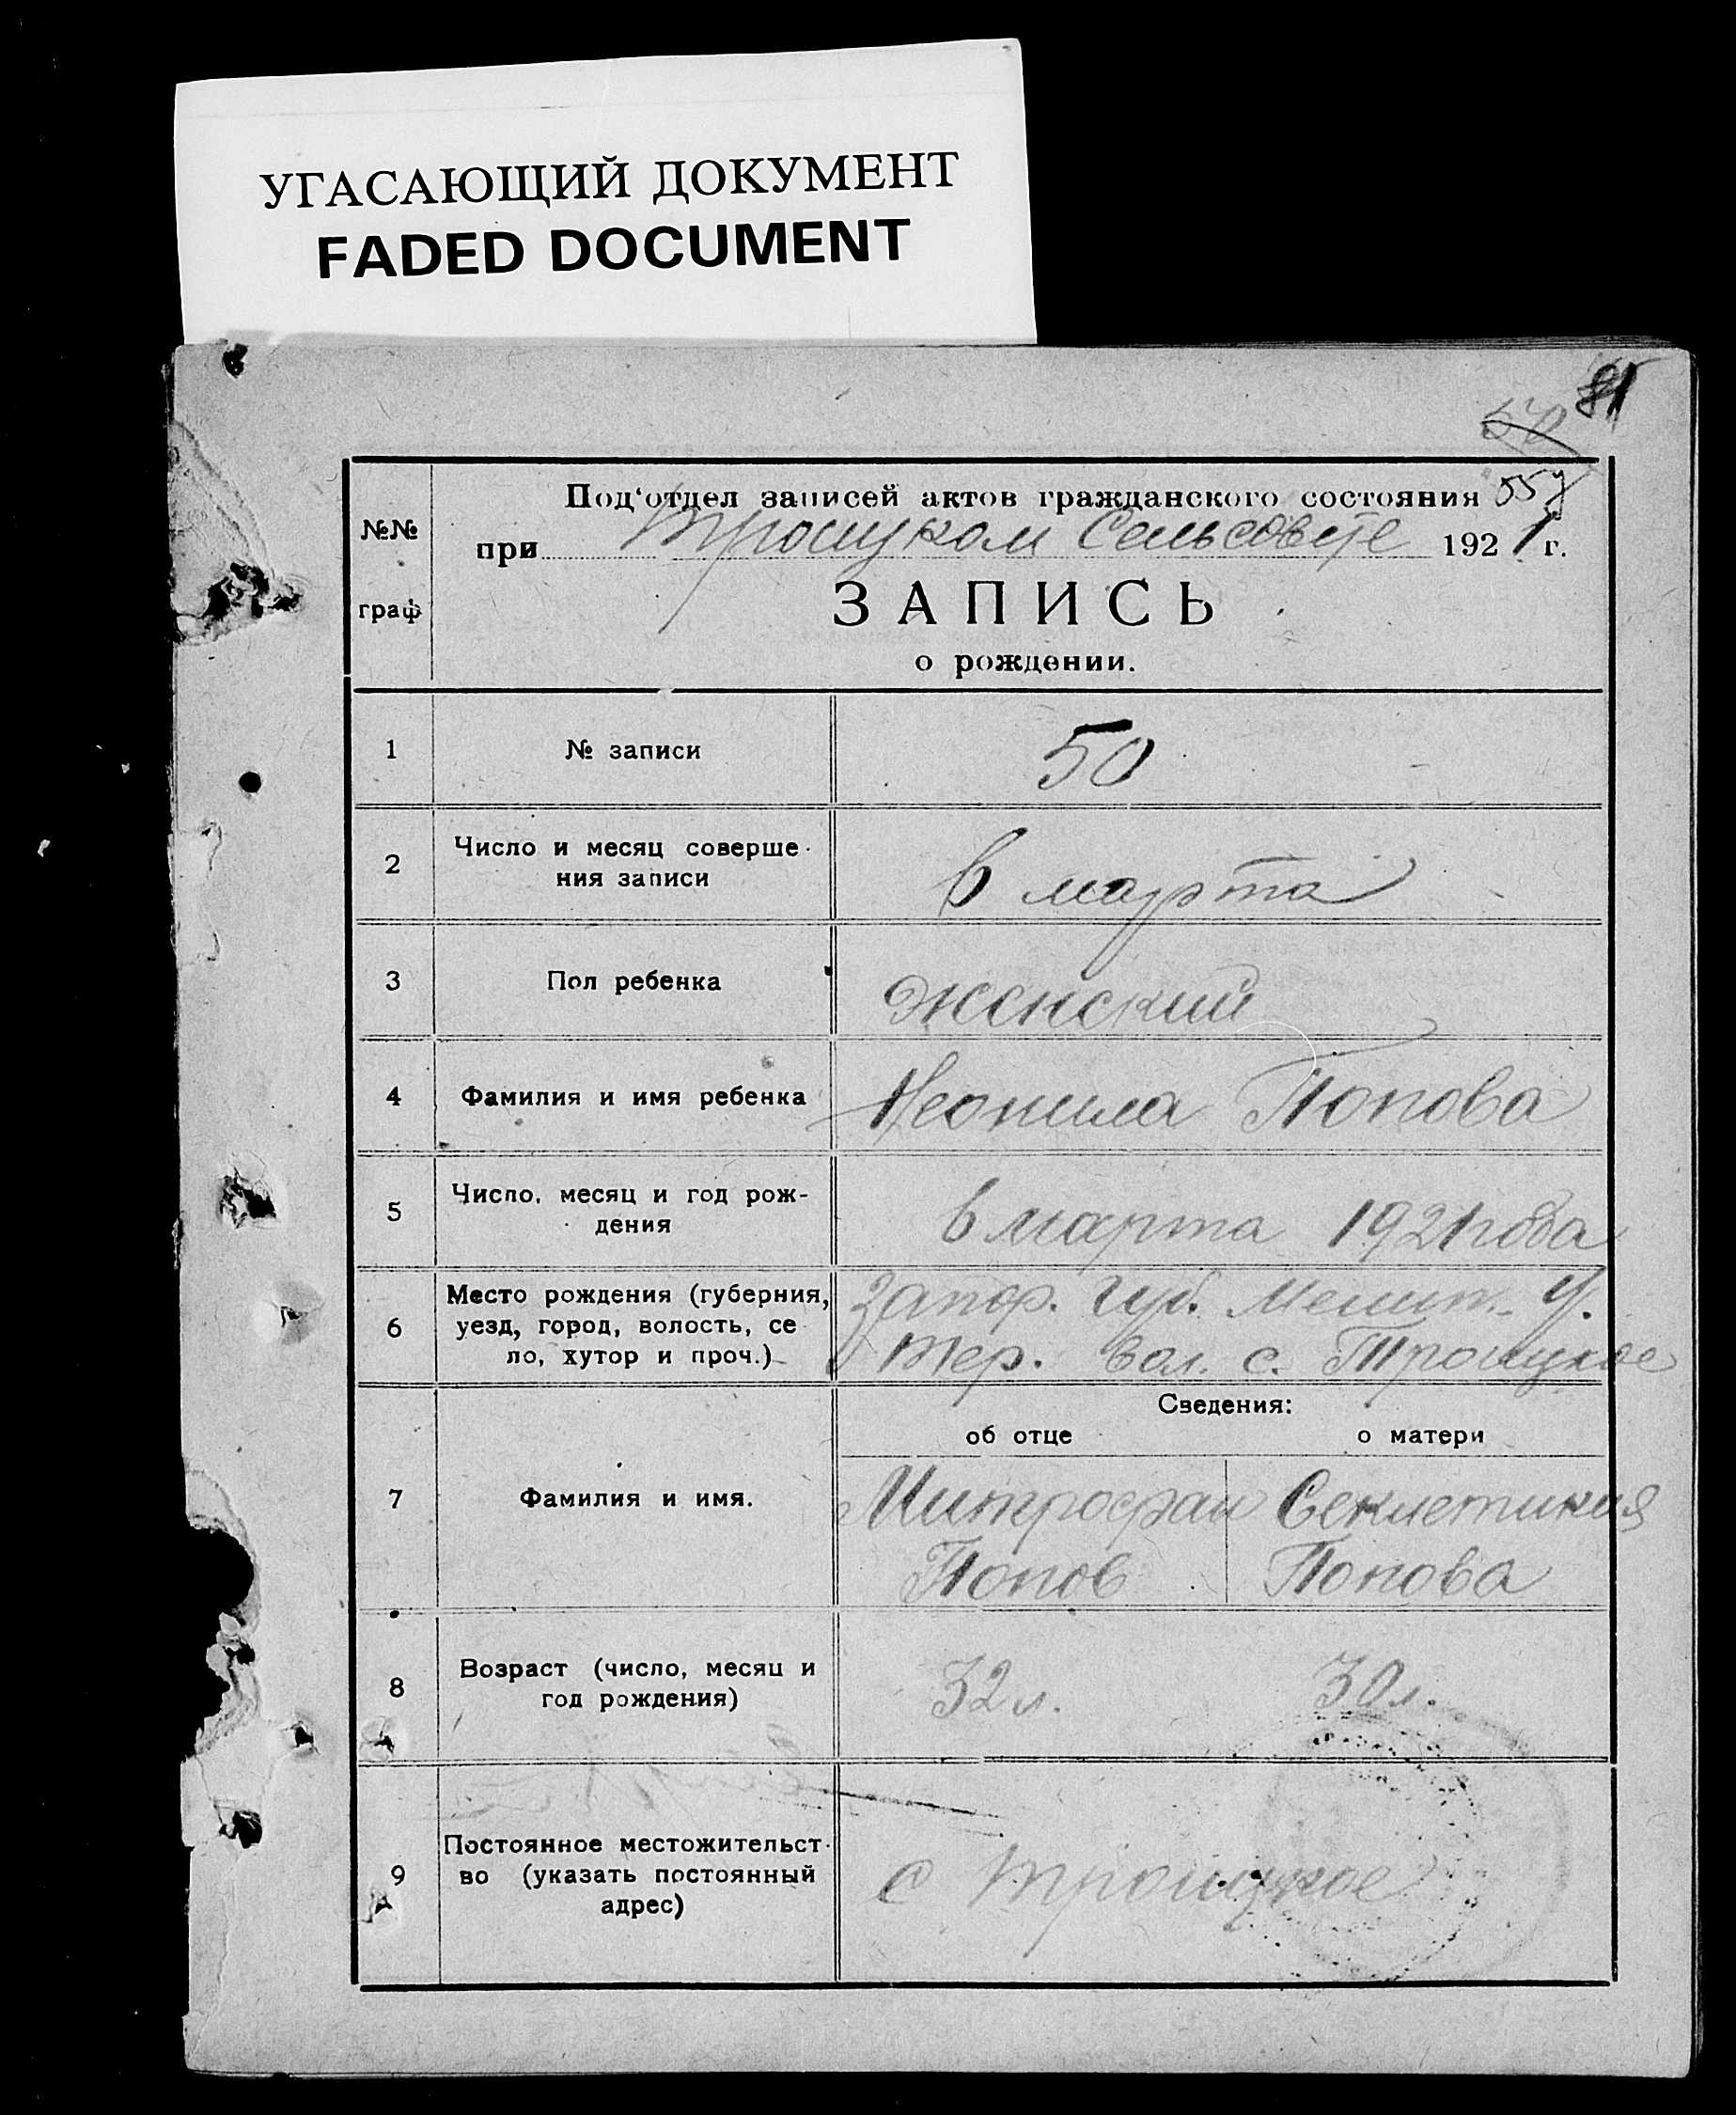 УГАСАЮЩИЙ ДОКУМЕНТ
FADED DOCUMENT
81
50
№№
граф
Под'отдел записей актов гражданского состояния
при Троицком Сельсовете 1921 г.
ЗАПИСЬ
о рождении.
1
№ записи
50
2
Число и месяц соверше-
ния записи
6 марта
3
Пол ребенка
женский
4
Фамилия и имя ребенка
Неонила Попова
5
Число, месяц и год рож-
дения
6 марта 1921 года
6
Место рождения (губерния,
уезд, город, волость, се
ло, хутор и проч.)
Запор. губ. Мелит. У.
Тер. вол. с. Троицкое
Сведения:
об отце
о матери
7
Фамилия и имя.
Митрофан
Попов
Секлетикия
Попова
8
Возраст (число, месяц и
год рождения)
32 л.
30 л.
9
Постоянное местожительст-
во (указать постоянный
адрес)
с Троицкое